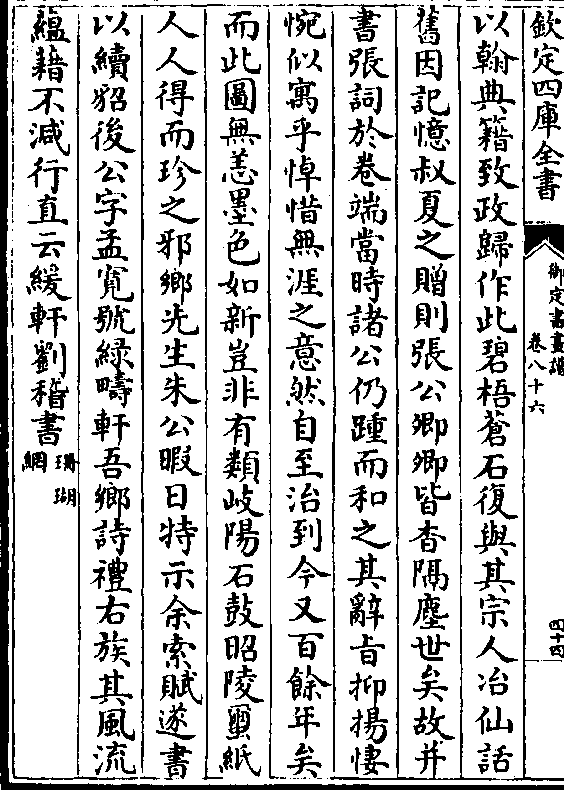 欽定四庫全書
御定書畫譜
卷八十六
四十四
以翰典籍致政歸作此碧梧蒼石復與其宗人冶仙話
舊因記憶叔夏之贈則張公卿卿皆杳隔塵世矣故并
書張詞於卷端當時諸公仍踵而和之其辭旨抑揚悽
惋似寓乎悼惜無涯之意然自至治到今又百餘年矣
而此圖無恙墨色如新豈非有類岐陽石鼓昭陵璽紙
人人得而珍之邪鄉先生朱公暇日特示余索賦遂書
以續貂後公字孟寛號綠疇軒吾鄉詩禮右族其風流
藴藉不減行直云緩軒劉稽書珊瑚
網